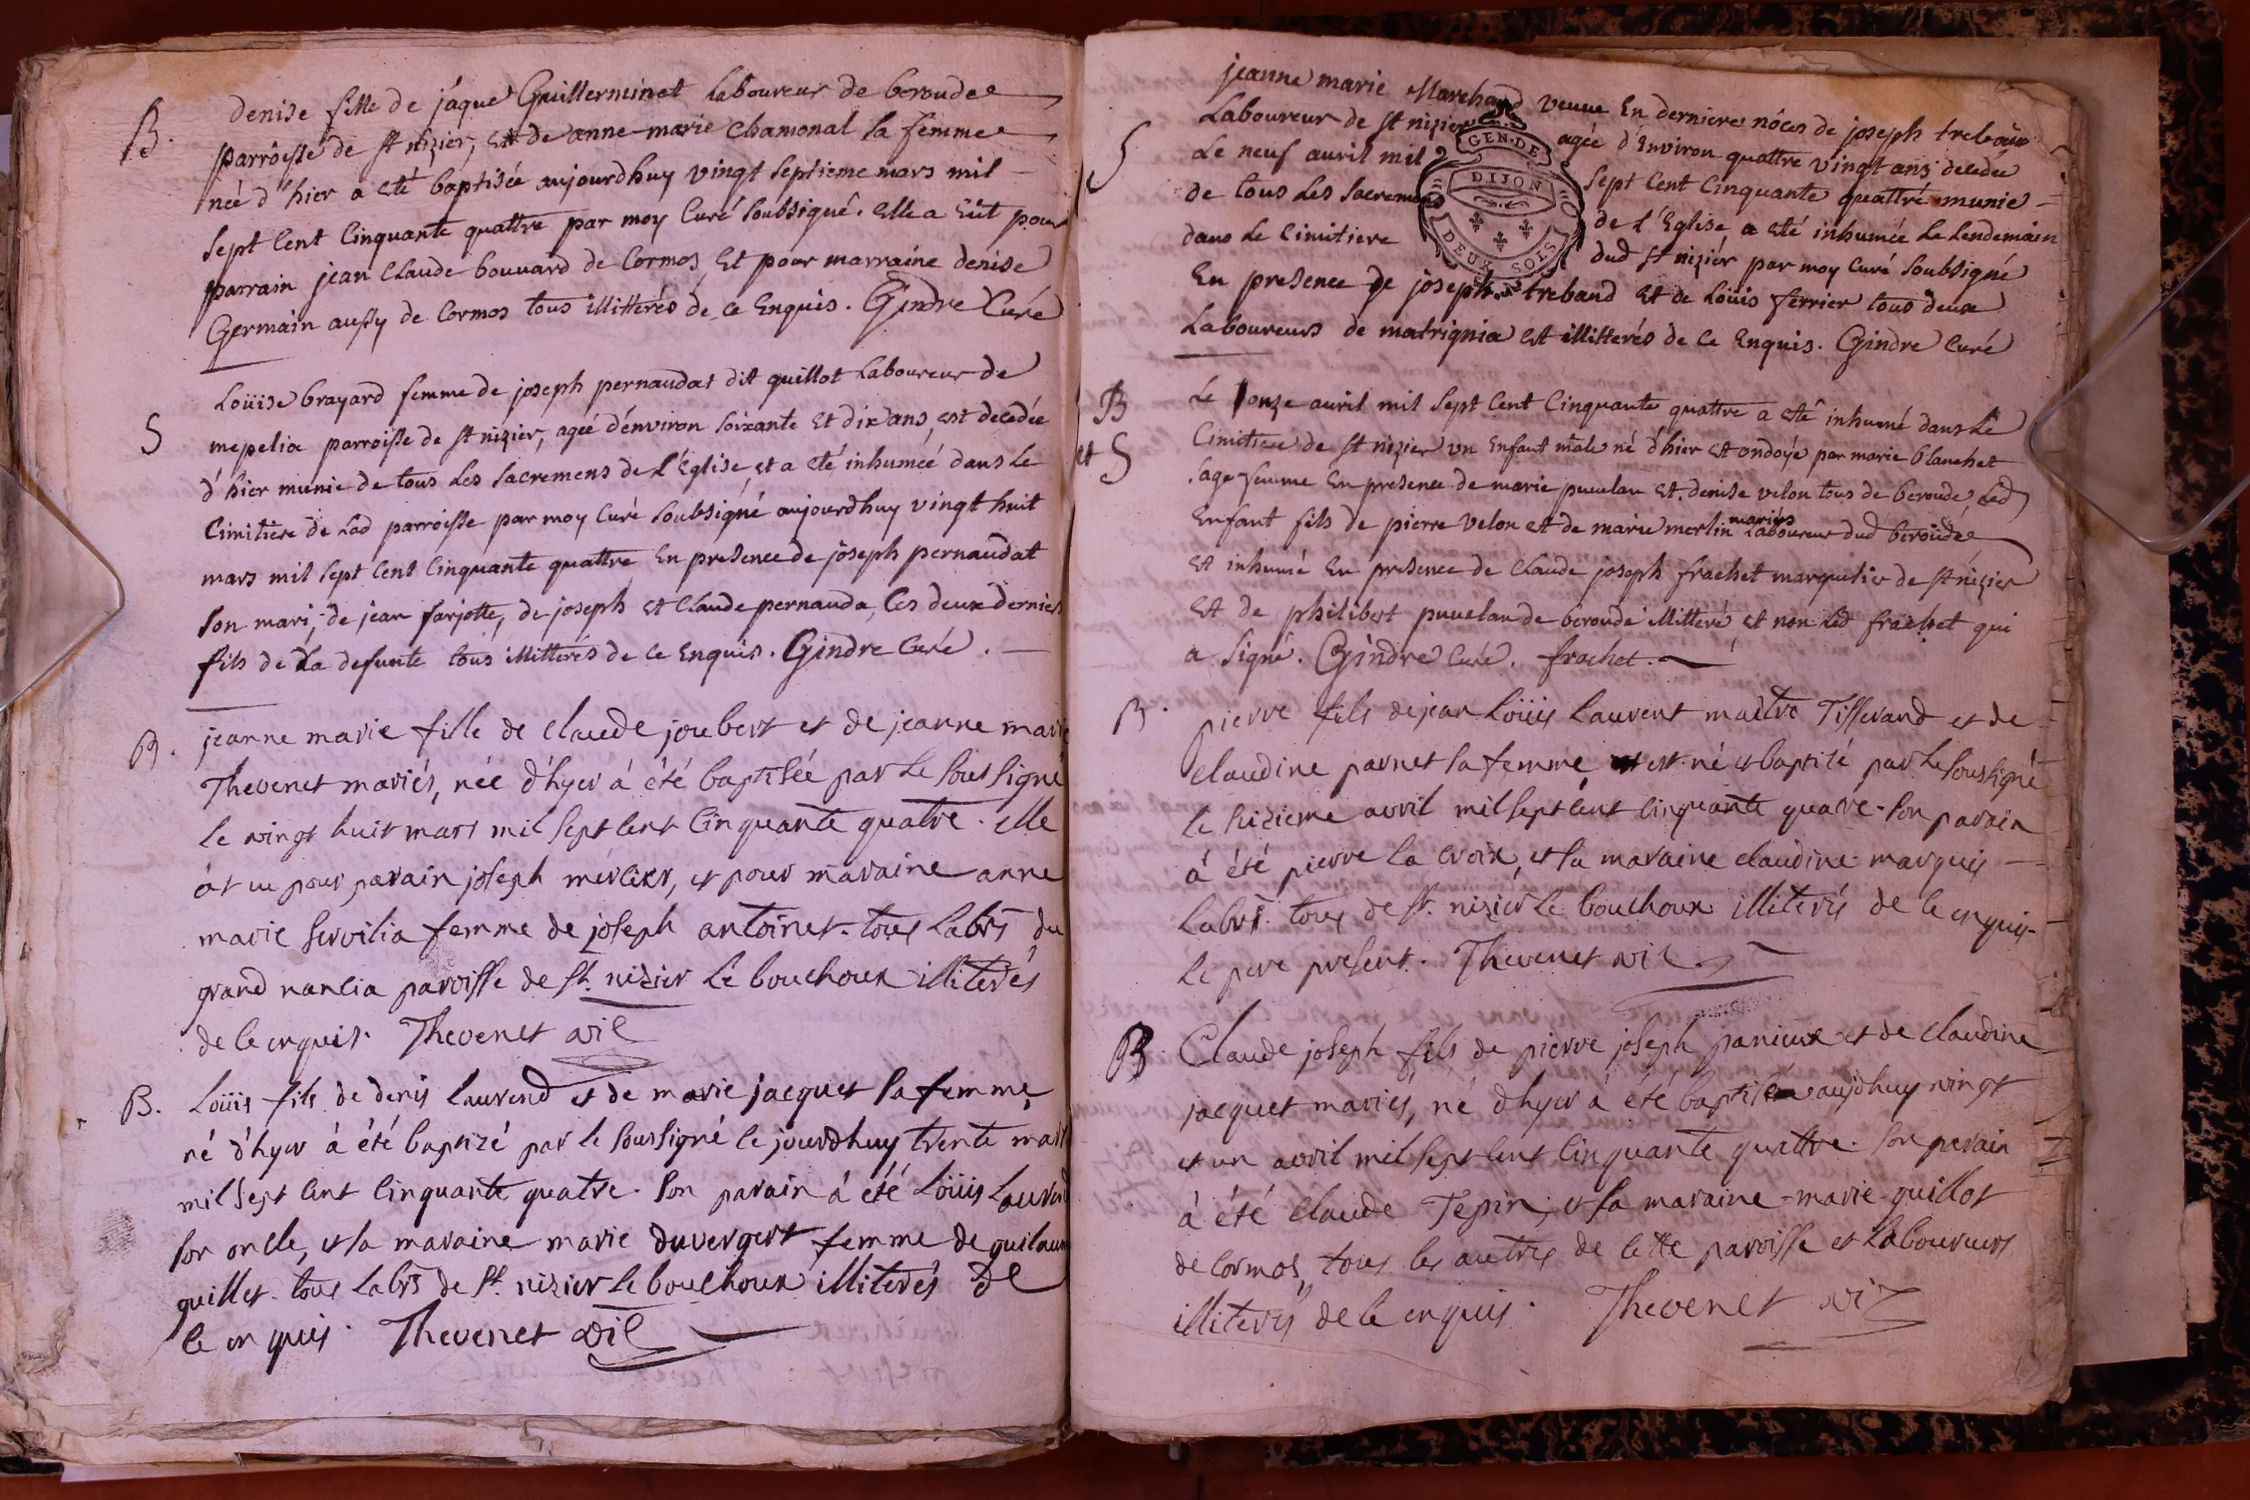 B. Denise fille de jaque Guillerminet Laboureur de beroude
parroisse de st nizier, et de anne marie Chamonal sa femme
née d'hier a eté baptisée aujourdhuy vingt septieme mars mil
sept cent cinquante quattre par moy Curé soubsigné. elle a eüt pour
parrain jean Claude bouvard de Cormos, et pour marraine denise
Germain aussy de Cormos tous illitterés de ce Enquis. Gindre Curé
S Loüise brayard femme de joseph pernaudat dit guillot Laboureur de
mepelia parroisse de st nizier, ageé d'environ soixante et dix ans, est decedée
d'hier munie de tous les sacremens de l'Eglise, et a eté inhumeé dans le
Cimitiere de Lad parroisse par moy Curé soubsigné aujourdhuy vingt huit
mars mil sept cent cinquante quattre en presence de joseph pernaudat
son mari, de jean farjotte, de joseph et Claude pernauda, ces deux derniers
fils de La defunte tous illitterés de ce Enquis. Gindre Curé.
B. jeanne marie fille de claude joubert et de jeanne marie
Thevenet mariés, née d'hyer á été baptisée par le soussigné
le vingt huit mars mil sept cent cinquante quatre. elle
át eu pour parain joseph mercier, et pour maraine anne
marie servilia femme de joseph antoinet. tous labrs du
grand nancia paroisse de st. nizier le bouchoux illiterés
de ce enquis. Thevenet vic
B. Loüis fils de denis laurend et de marie jacquet sa femme,
né d'hyer á été baptizé par le soussigné ce jourdhuy trente mars
mil sept cent cinquante quatre. son parain á été Loüis Laurend
son oncle, et sa maraine marie duvergert femme de guilaume
guillet. tous labrs de st. nizier le bouchoux illiterés de
ce enquis. Thevenet vic
jeanne marie Marchand veuve En derniere nóces de joseph trebaud
S Laboureur de st nizier agée d'Environ quattre vingt ans decedée
Le neuf avril mil sept cent cinquante quattre munie
de tous Les sacremens de l'Eglise a eté inhumée Le Lendemain
dans Le Cimitiere dud st nizier par moy Curé soubsigné
En presence de joseph treband et de Loüis ferrier tous deux
Laboureurs de matrignia et illitterés de ce Enquis. Gindre Curé
GEN·DE
DIJON
DEUX SOLS
B et S Le onze avril mil sept cent cinquante quattre a eté inhumé dans Le
Cimitiere de st nizier un Enfant male né d'hier et ondoyé par marie blanchet
sage femme En presence de marie puvelan et denise velon tous de beroude, Led
Enfant fils de pierre velon et de marie merlin mariés Laboureur dud beroude
et inhumé En presence de Claude joseph frachet marguilier de st nizier
et de philibert puvelan de beroude illitteré, et non Led frachet qui
a signé. Gindre Curé. frachet.
B. pierre fils de jean Loüis laurent maitre Tisserand et de
claudine parnet sa femme est né et baptisé par le soussigné
le sizieme avril mil sept cent cinquante quatre. son parain
á été pierre la croix, et sa maraine claudine marquis
labrs. tous de st. nizier le bouchoux illiterés de ce enquis.
le pere present. Thevenet vic.
B. Claude joseph fils de pierre joseph panieux et de claudine
jacquet mariés, né d'hyer á été baptisé aujdhuy vingt
et un avril mil sept cent cinquante quattre. son parain
á été claude Tepin, et sa maraine marie guillot
de cormos, tous les autres de cette paroisse et laboureurs
illiterés de ce enquis. Thevenet vic